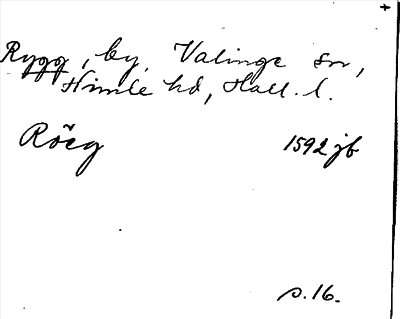 Rygg, by, Valinge sn,
Himle hd, Hall. l.
Röeg 1592 jb
s. 16.